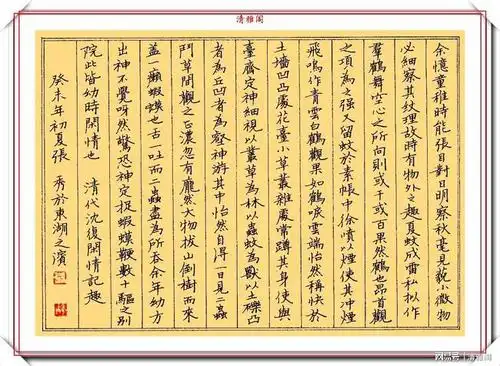 清雅阁
余憶童稚時能張目對日明察秋毫見藐小微物
必細察其紋理故時有物外之趣夏蚊成雷私拟作
羣鶴舞空心之所向則或千或百果然鶴也昂首觀
之項為之强又留蚊於素帳中徐噴以煙使其冲煙
飛鳴作青雲白鶴觀果如鶴唳雲端怡然稱快於
土墙凹凸處花臺小草叢雜處常蹲其身使與
臺齋定神細視以叢草為林以蟲蚊為獸以土礫凸
者為丘凹者為壑神游其中怡然自得一日見二蟲
鬥草間觀之正濃忽有龐然大物拔山倒樹而來
蓋一癩蝦蟆也舌一吐而二蟲盡為所吞余年幼方
出神不覺呀然驚恐神定捉蝦蟆鞭數十驅之别
院此皆幼時閑情也 清代沈復閑情記趣
癸未年初夏張 秀於東湖之濱
搜狐号@清雅阁